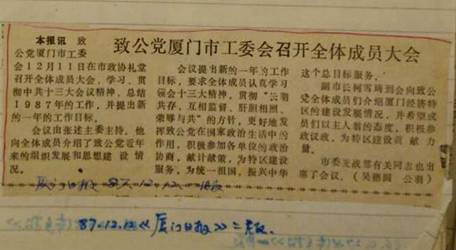 致公党厦门市工委会召开全体成员大会
本报讯 致
公党厦门市工委
会12月11日在市政协礼堂
召开全体成员大会,学习、贯
彻中共十三大会议精神,总结
1987年的工作,并提出新
的一年的工作目标。
会议由张述主委主持。他
向全体成员介绍了致公党近年
来的组织发展和思想建设情
况。
会议提出新的一年的工作
目标,要求全体成员认真学习
领会十三大精神,贯彻“长期
共存,互相监督,肝胆相照,
荣辱与共”的方针,更好地发
挥致公党在国家政治生活中的
作用,积极参加各单位的政治
协商,献计献策,为特区建设
服务,为统一祖国,振兴中华
这个总目标服务。
副市长柯雪琦到会向致公
党全体成员们介绍厦门经济特
区的建设发展情况,并希望成
员们以主人翁的态度,积极参
政议政,为特区建设贡献力
量。
市委统战部有关同志也出
席了会议。
厦门日报 87.12.12
87.12.12《厦门日报》二版.